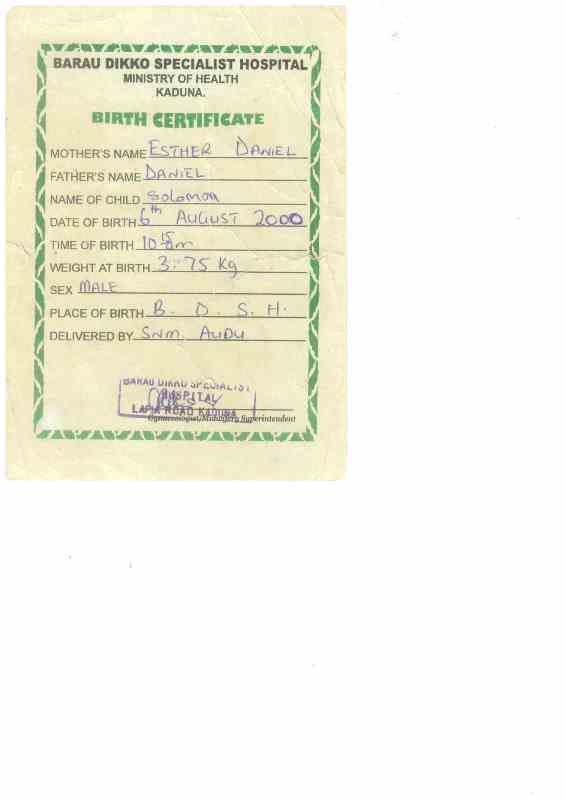 BARAU DIKKO SPECIALIST HOSPITAL
MINISTRY OF HEALTH
KADUNA.
BIRTH CERTIFICATE
MOTHER'S NAME ESTHER DANIEL
FATHER'S NAME DANIEL
NAME OF CHILD Solomon
DATE OF BIRTH 6th AUGUST 2000
TIME OF BIRTH 10 15 am
WEIGHT AT BIRTH 3.75 Kg
SEX MALE
PLACE OF BIRTH B. D. S. H.
DELIVERED BY SNM. AUDU
BARAU DIKKO SPECIALIST
HOSPITAL
LAFIA ROAD KADUNA
Gynaecologist/Midwifery Superintendent